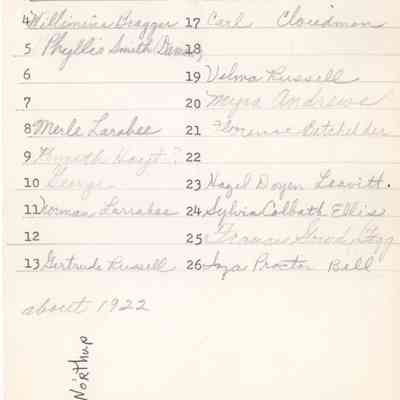 4 Willimina Bragger 17 Carl Cloudman
5 Phyllis Smith 18
6 19 Velma Russell
7 20 Myra Andrews
8 Merle Larabee 21 Florence Batchelder
9 Kenneth Hoyt ? 22
10 George 23 Hazel Doyen Leavitt.
11 Norman Larrabee 24 Sylvia Colbath Ellis
12 25 Frances
13 Gertrude Russell 26 Proctor Bell
about 1922
Northup